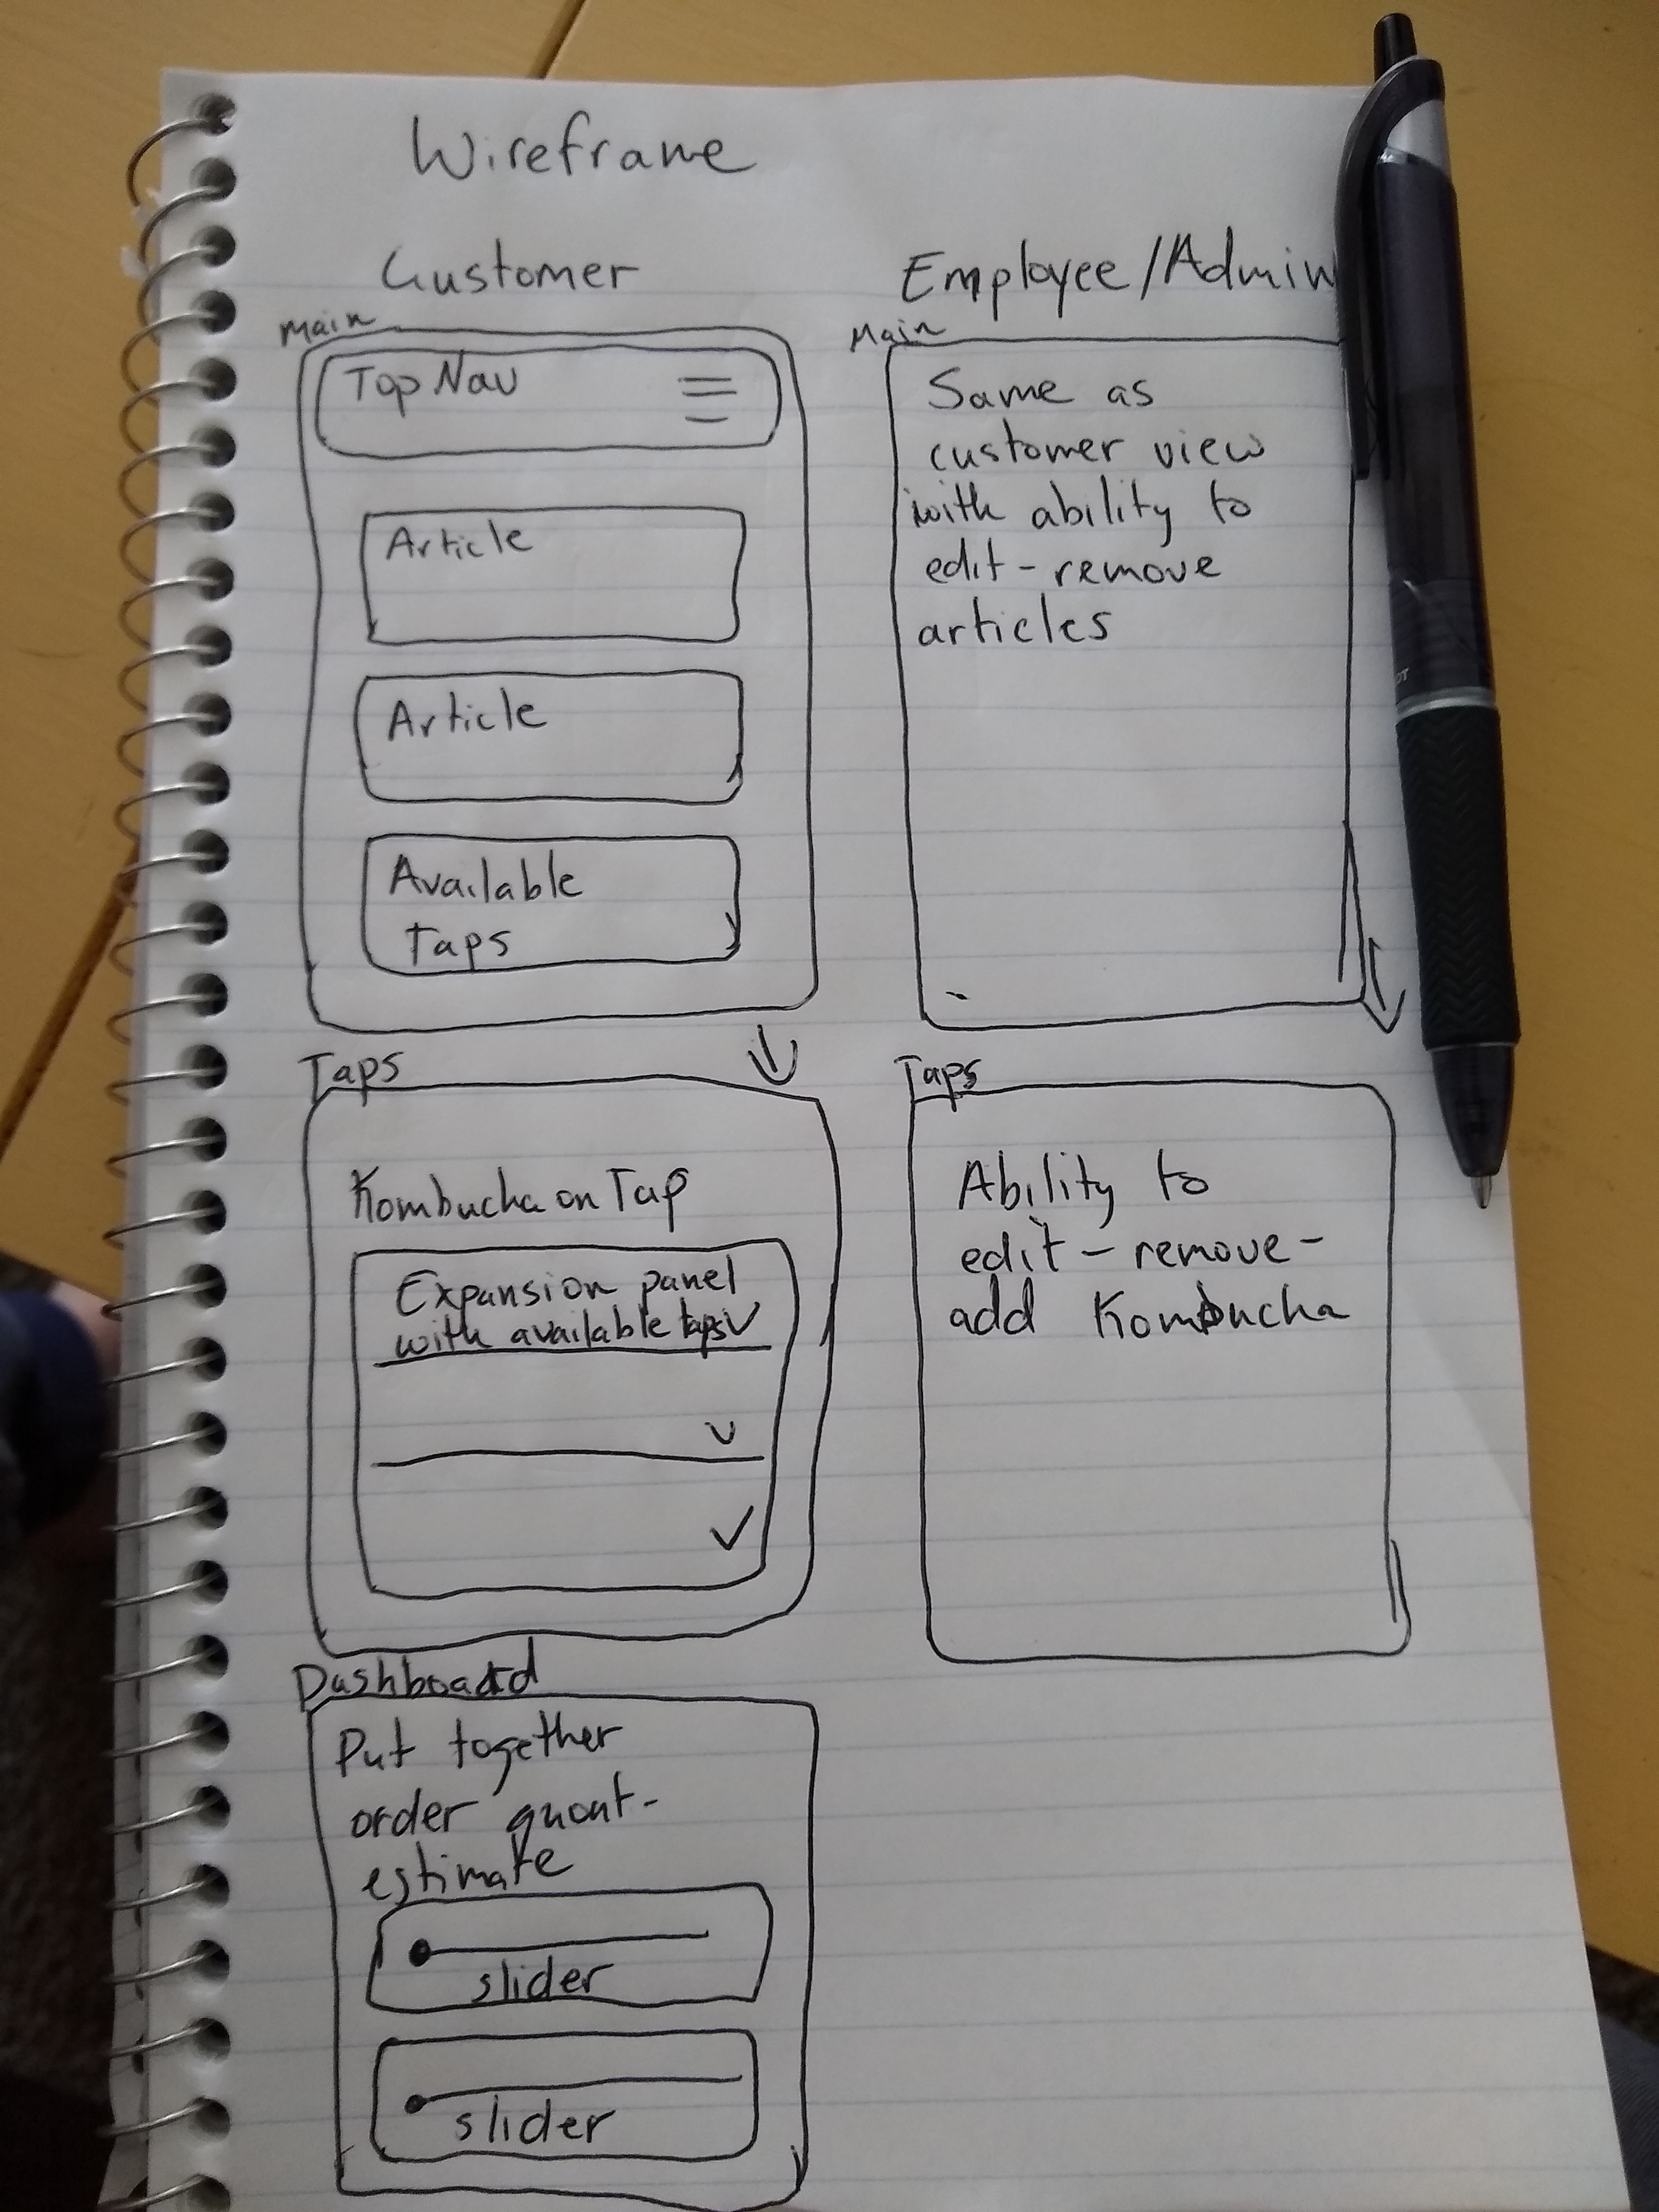 Wireframe
Customer
Main
Top Nav
Article
Article
Available
Taps
Taps
Kombucha on Tap
Expansion panel
with available taps
Dashboard
Put together
order quont-
estimate
slider
slider
Employee/Admin
Main
Same as
customer view
with ability to
edit - remove
articles
Taps
Ability to
edit - remove -
add Kombucha